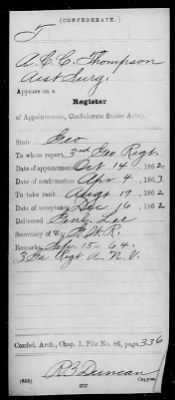 (CONFEDERATE.)
T
A. C. C. Thompson
Asst Surg.
Appears on a
Register
of Appointments, Confederate States Army.
State Geo
To whom report 3rd Geo Regt.
Date of appointment Oct 14, 1862
Date of confirmation Apr 4, 1863
To take rank Augt 19, 1862
Date of acceptance Dec 16, 1862
Delivered Genl. Lee
Secretary of War G. W. R.
Remarks: Feby. 15-64.
3 Ga Regt A. N. V.
Confed. Arch., Chap. 1, File No. 86, page 336
R B Duncan
(635)
Copyist.